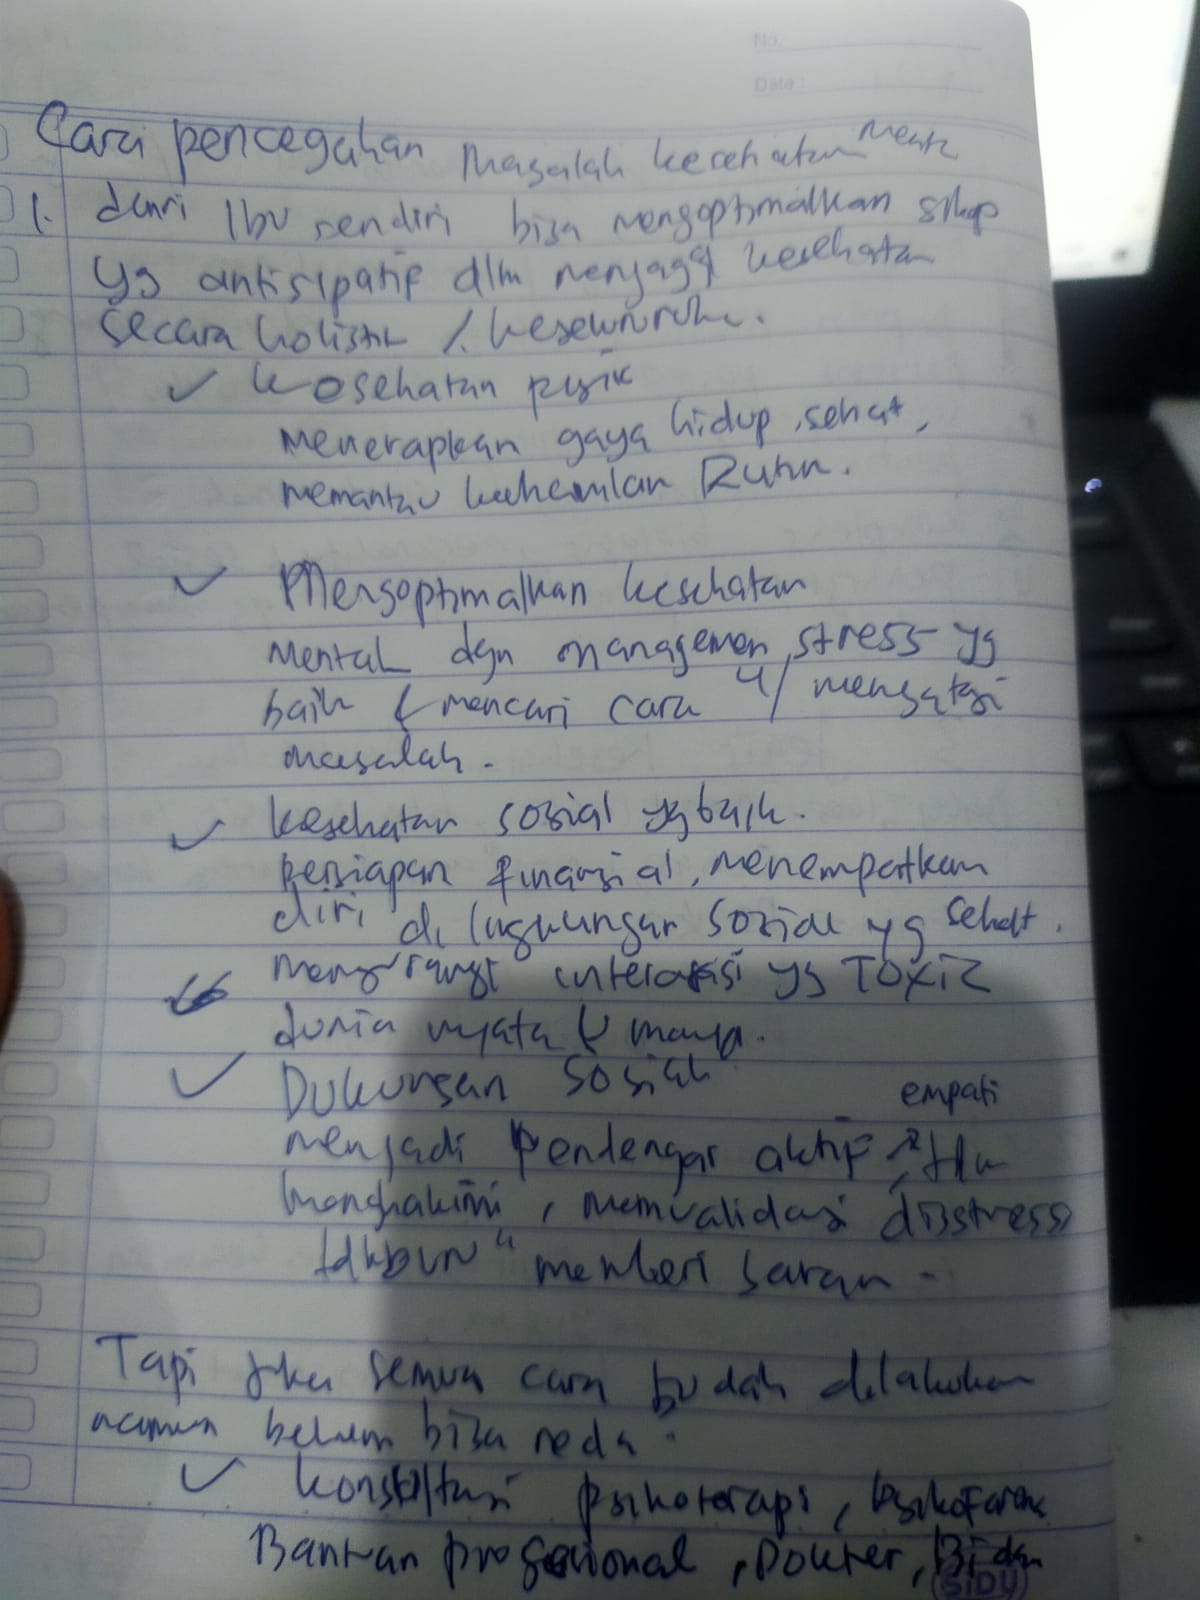 No.
Date :
Cara pencegahan masalah kesehatan
1. dari Ibu sendiri bisa mengoptimalkan sikap
yg antisipatif dlm menjaga kesehatan
secara holistik /
✓ kesehatan fisik
menerapkan gaya hidup sehat,
memantau kehamilan Rutin.
✓ Mengoptimalkan kesehatan
mental dgn managemen stress yg
baik & mencari cara u/ mengatasi
masalah.
✓ kesehatan sosial yg baik.
persiapan finansial, menempatkan
diri di lingkungan sosial yg sehat.
mengurangi interaksi yg TOXIC
dunia nyata & maya.
✓ Dukungan sosial
empati
menjadi pendengar aktif,
menghakimi, memvalidasi disstress
memberi saran -
Tapi jika semua cara sudah dilakukan
namun belum bisa reda.
✓ konsultasi psikoterapi,
Bantuan profesional, Dokter, Bidan
SiDU